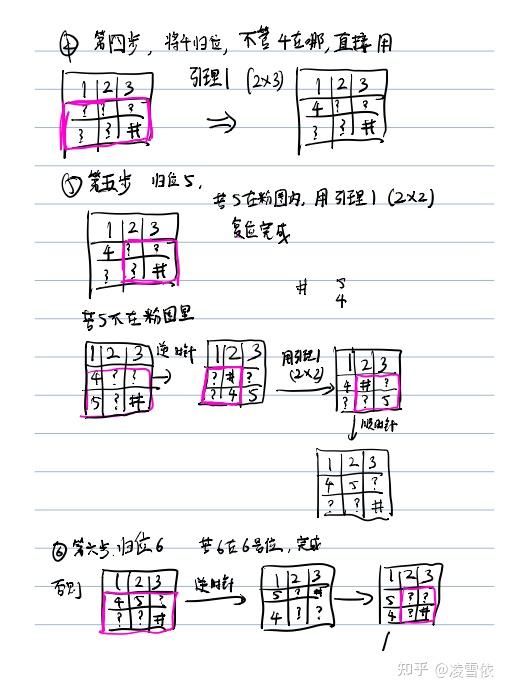 ④ 第四步, 将4归位, 不管4在哪, 直接用
引理1 (2×3)
1 2 3
? ? ?
? ? #
⇒
1 2 3
4 ? ?
? ? #
⑤ 第五步 归位5,
若5在粉圈内, 用引理1 (2×2)
复位完成
1 2 3
4 ? ?
? ? #
# 5
4
若5不在粉圈里
1 2 3
4 ? ?
5 ? #
逆时针
1 2 3
? # ?
? 4 5
用引理1
(2×2)
1 2 3
4 # ?
? ? 5
顺时针
1 2 3
4 5 ?
? ? #
⑥ 第六步, 归位6 若6在6号位, 完成
否则
1 2 3
4 5 ?
? ? #
逆时针
1 2 3
5 ? #
4 ? ?
1 2 3
5 ? ?
4 ? #
知乎 @凌雪依